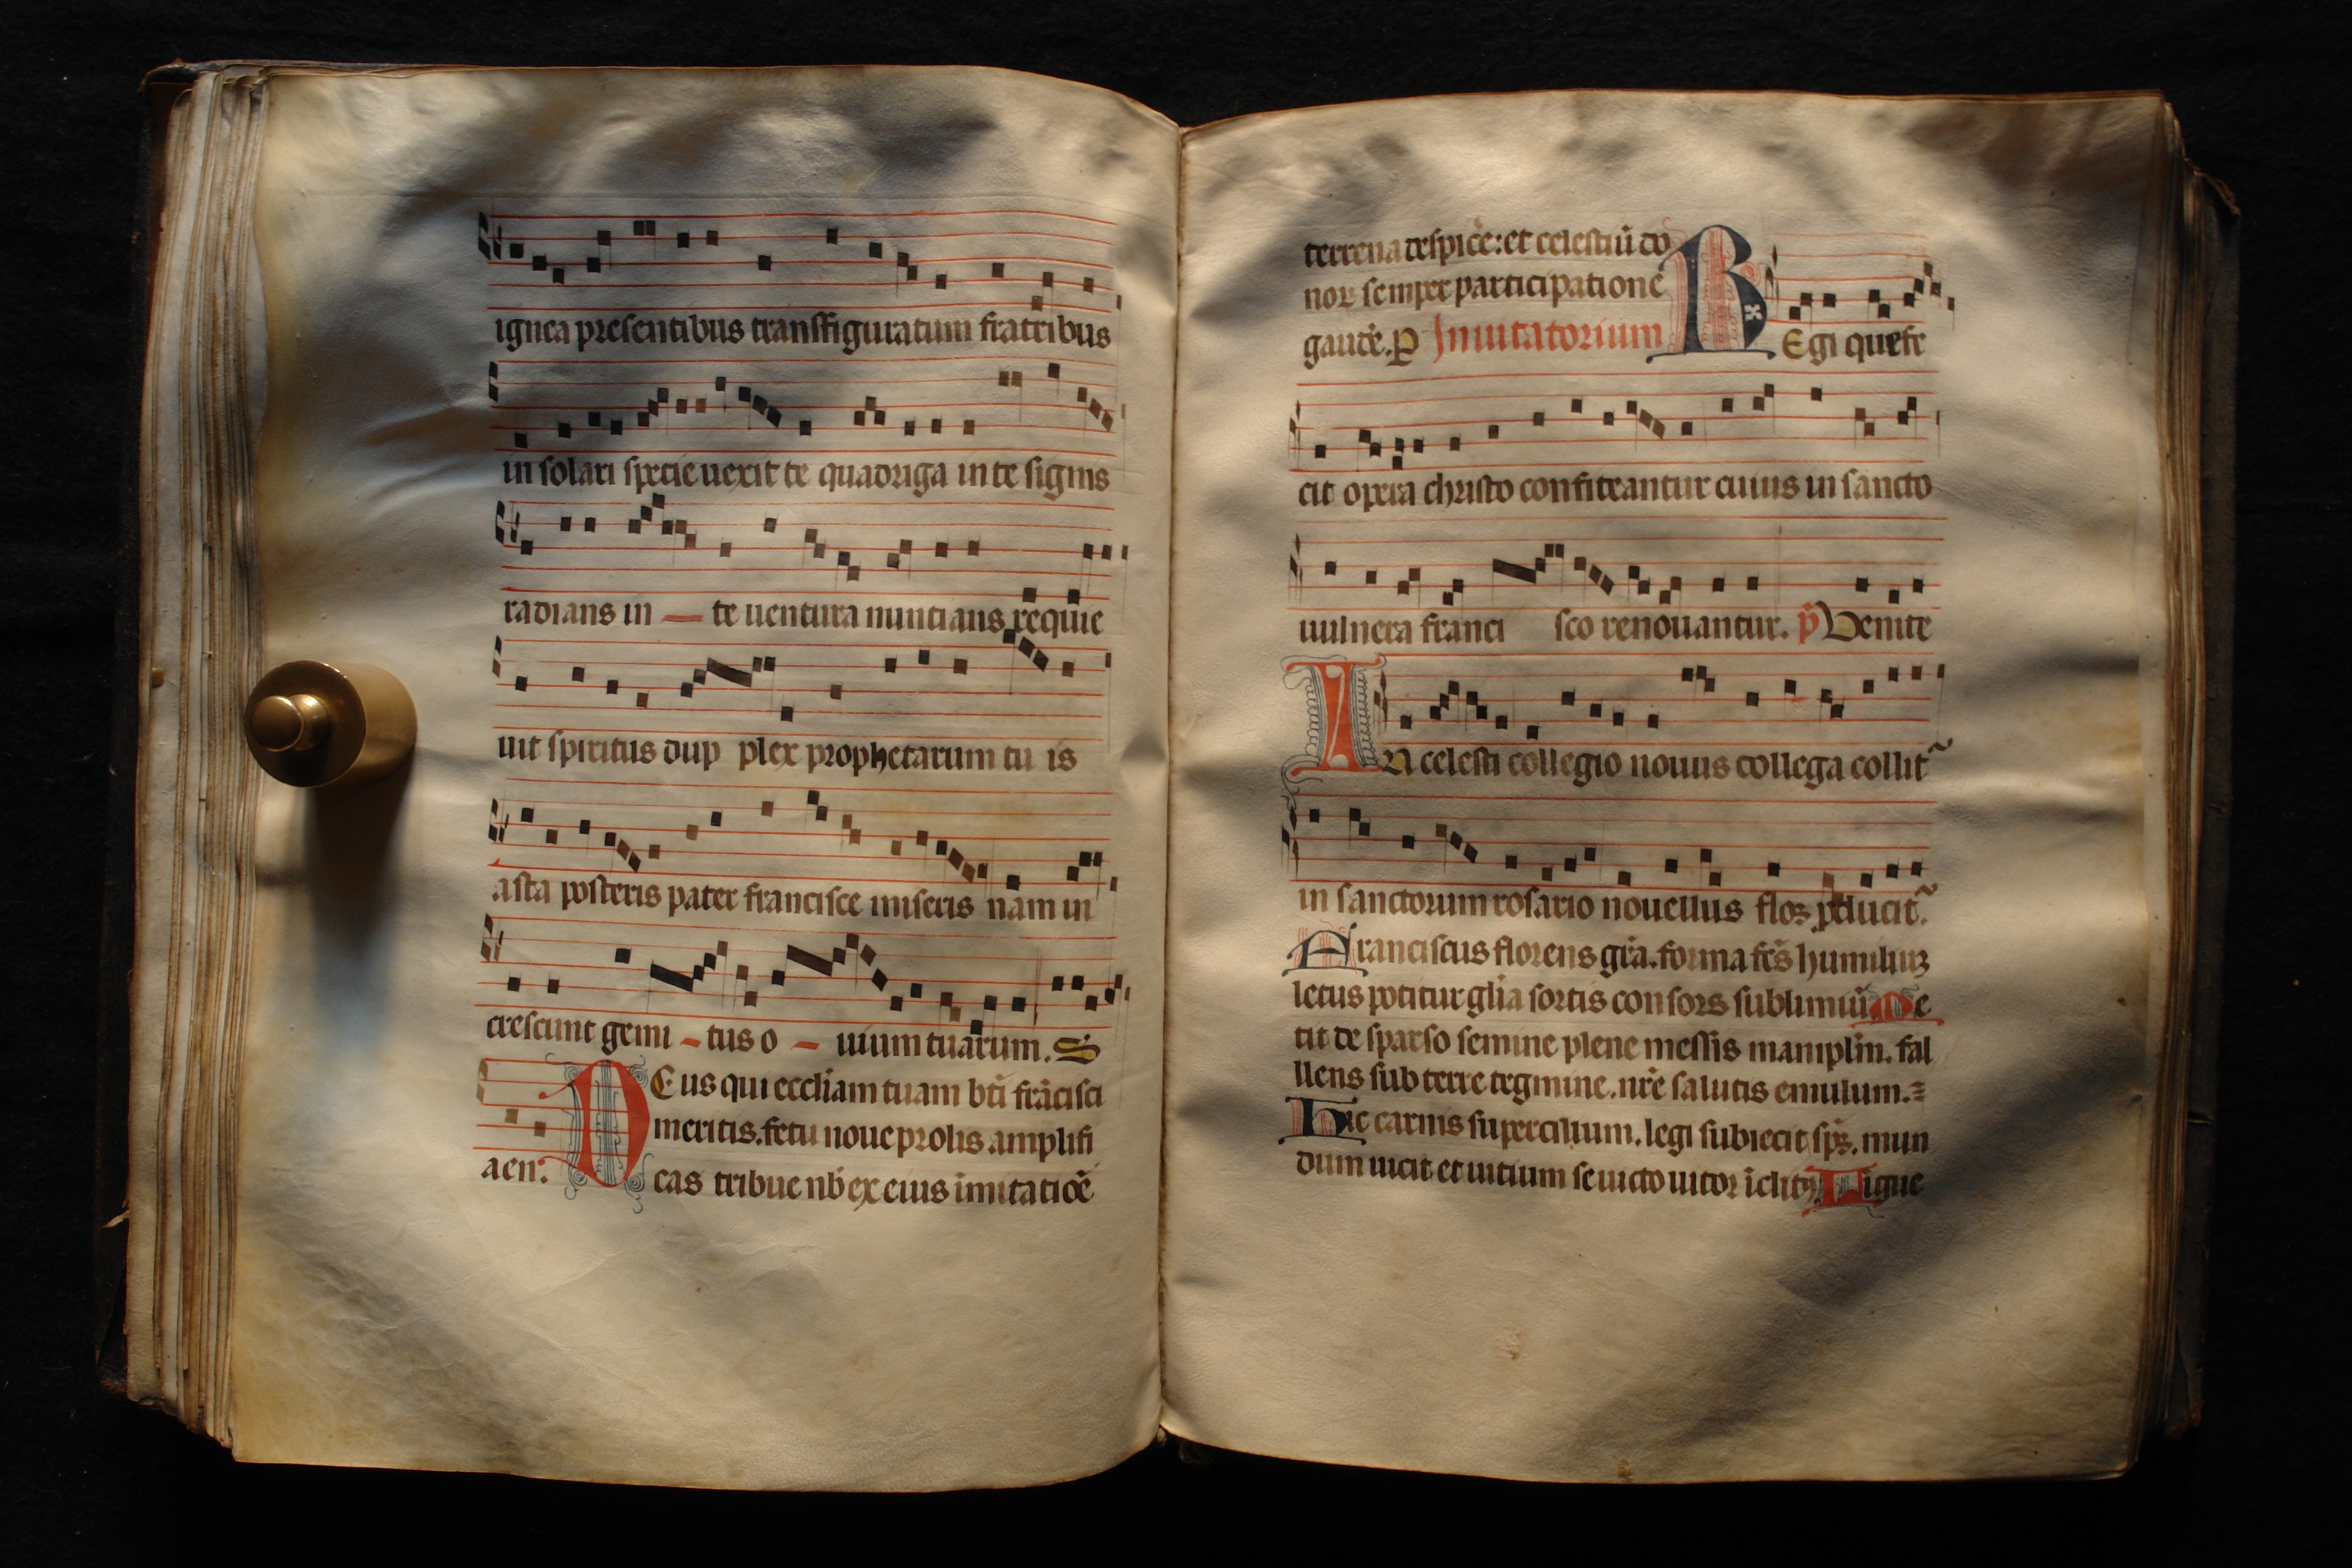 ignea presentibus transffiguratum fratribus
in solari specie uexit te quadriga in te signis
radians in — te uentura nuncians requie
uit spiritus dup plex prophetarum tu is
asta posteris pater francisce miseris nam in
crescunt gemi - tus o - uium tuarum. S
aeu:
DEus qui eccliam tuam bti frācisci
meritis. fetu noue prolis amplifi
cas tribue nb ex eius imitatiōe
terrena despice: et celestiū do
noꝝ semper participatione
gaude. P Inuitatorium REgi que fe
cit opera christo confiteantur cuius in sancto
uulnera franci sco renouantur. p̄ Venite
IN celesti collegio nouus collega collit~
in sanctorum rosario nouellus flos ꝓducit~.
Franciscus florens gra. forma fcs humiliuꝫ
letus potitur glia sortis consors sublimiū Me
tit de sparso semine plene messis maniplm. fal
llens sub terre tegmine. nre salutis emulum.
Hic carnis supercilium. legi subiecit sps. mun
dum uicit et uitium se uicto uictor iclitꝰ Ligue